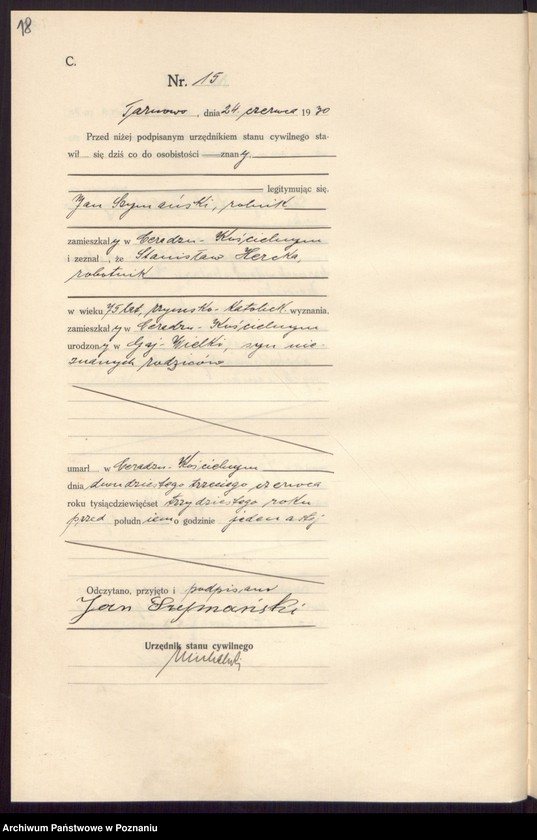 18
C.
Nr. 15
Tarnowo, dnia 24. czerwca 1930
Przed niżej podpisanym urzędnikiem stanu cywilnego sta-
wił się dziś co do osobistości znany
legitymując się.
Jan Szymański, rolnik
zamieszkały w Ceradzu-Kościelnym
i zeznał, że Stanisław Hercka,
robotnik
w wieku 75 lat, rzymsko-katolick. wyznania,
zamieszkały w Ceradzu-Kościelnym
urodzony w Gaj-Wielki, syn nie-
znanych rodziców
umarł w Ceradzu-Kościelnym
dnia dwudziestego trzeciego czerwca
roku tysiącdziewięćset trzydziestego roku
przed południem o godzinie jedenastej
Odczytano, przyjęto i podpisano
Jan Szymański
Urzędnik stanu cywilnego
Archiwum Państwowe w Poznaniu